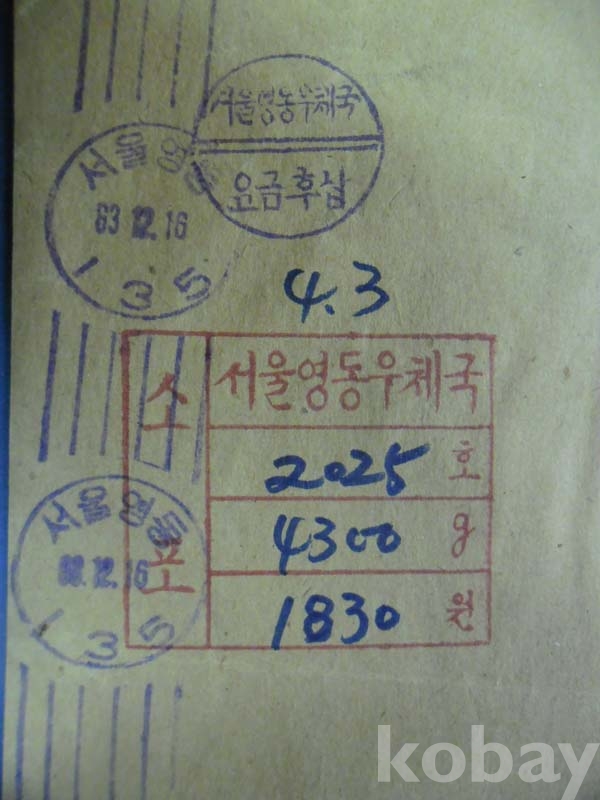 서울영동우체국
요금후납
서울영동
83.12.16
135
4.3
소포
서울영동우체국
2025 호
4300 g
1830 원
서울영동
83.12.16
135
kobay